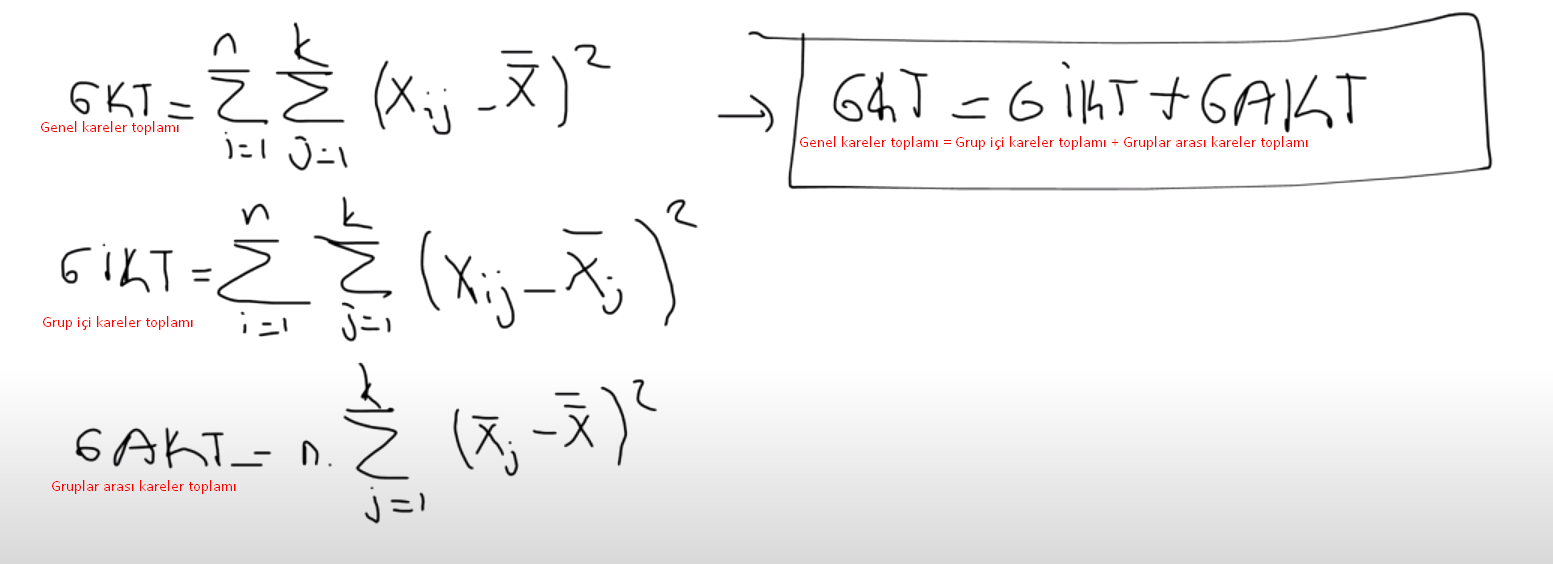 GKT = n∑i=1 k∑j=1 (xij - x̿)²
Genel kareler toplamı
→ GKT = GİKT + GAKT
Genel kareler toplamı = Grup içi kareler toplamı + Gruplar arası kareler toplamı
GİKT = n∑i=1 k∑j=1 (xij - x̄j)²
Grup içi kareler toplamı
GAKT = n. k∑j=1 (x̄j - x̿)²
Gruplar arası kareler toplamı